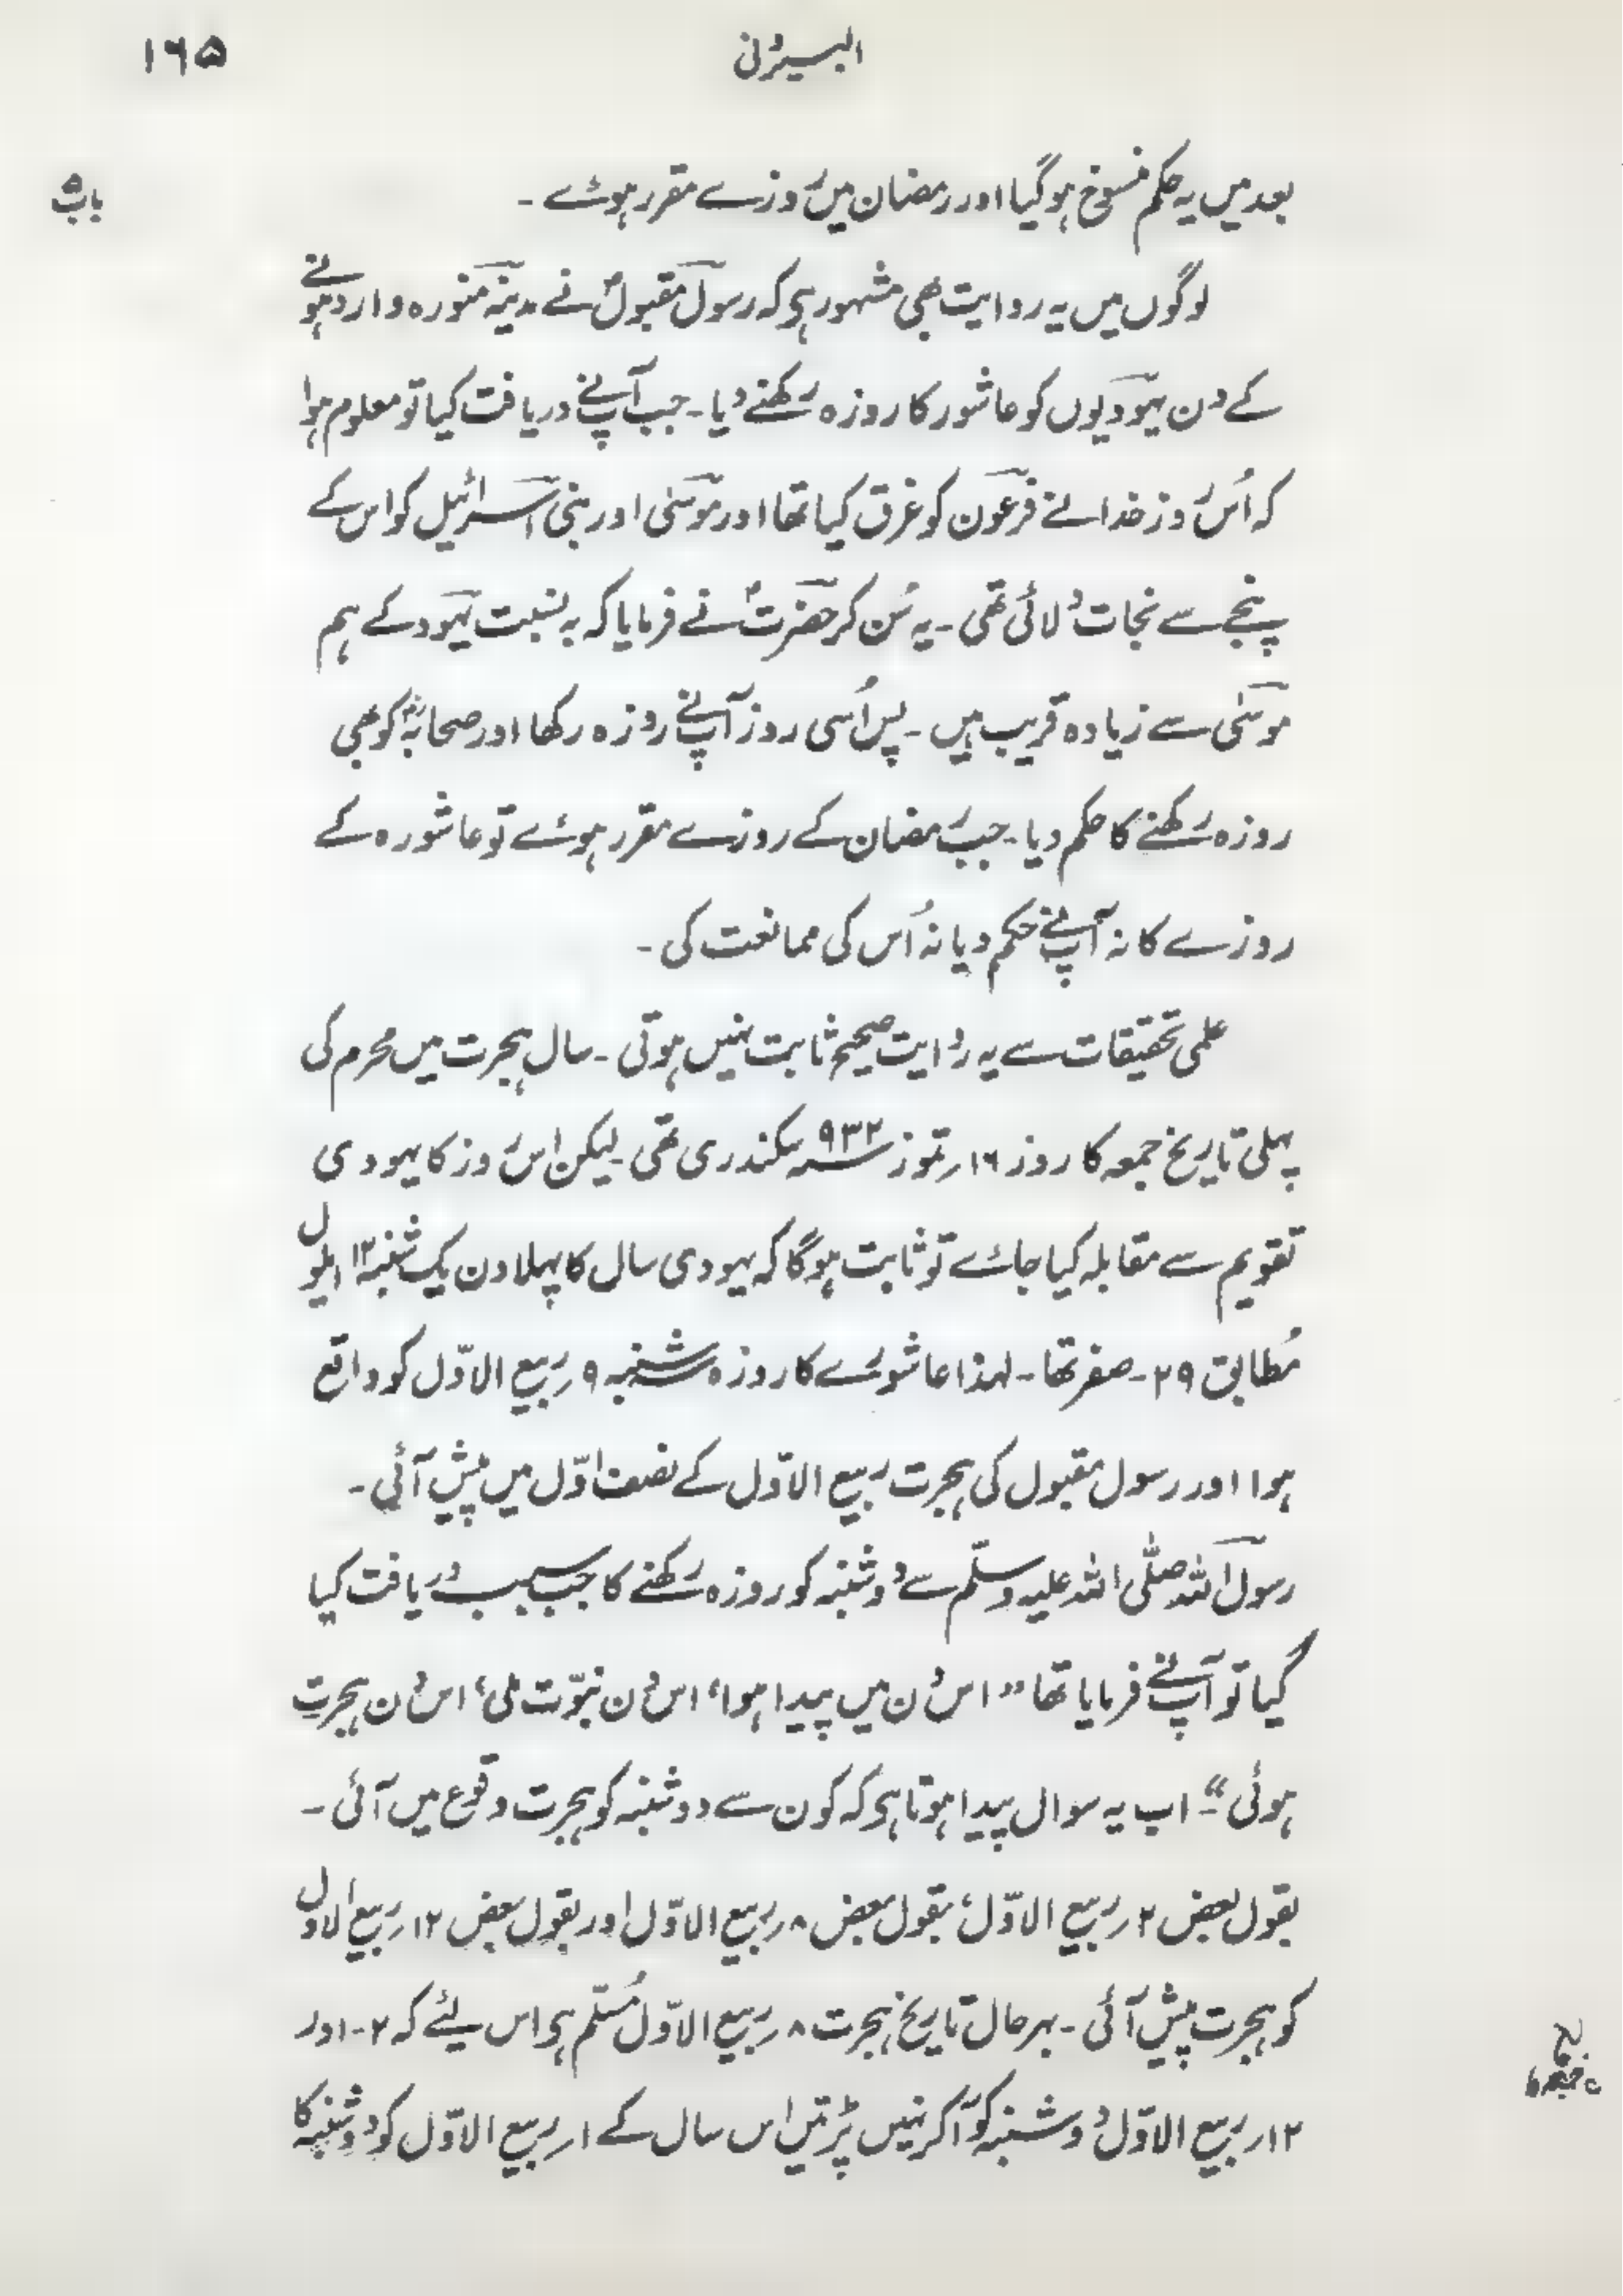 البیرونی
۱۶۵
باب
بعد میں یہ حکم منسوخ ہوگیا اور رمضان میں روزے مقرر ہوئے ۔
لوگوں میں یہ روایت بھی مشہور ہی کہ رسول مقبولؐ نے مدینہ منورہ وارد ہونے
کے دن یہودیوں کو عاشور کا روزہ رکھنے دیا ۔ جب آپنے دریافت کیا تو معلوم ہوا
کہ اُس روز خدا نے فرعون کو غرق کیا تھا اور موسٰی اور بنی اسرائیل کو اس کے
پنجے سے نجات دلائی تھی ۔ یہ سُن کر حضرتؐ نے فرمایا کہ بہ نسبت یہود کے ہم
موسٰی سے زیادہ قریب ہیں ۔ پس اُسی روز آپنے روزہ رکھا اور صحابہؓ کو بھی
روزہ رکھنے کا حکم دیا ۔ جب رمضان کے روزے مقرر ہوئے تو عاشورہ کے
روزے کا نہ آپنے حکم دیا نہ اُس کی ممانعت کی ۔
علمی تحقیقات سے یہ روایت صحیح ثابت نہیں ہوتی ۔ سال ہجرت میں محرم کی
پہلی تاریخ جمعہ کا روز ۱۶ ر تموز ۹۳۲ سنہ سکندری تھی ۔ لیکن اس روز کا یہودی
تقویم سے مقابلہ کیا جائے تو ثابت ہوگا کہ یہودی سال کا پہلا دن یک شنبہ ۱۲ ایلول
مُطابق ۲۹ ۔ صفر تھا ۔ لہذا عاشورے کا روزہ شنبہ ۹ ر ربیع الاوّل کو واقع
ہوا اور رسول مقبول کی ہجرت ربیع الاوّل کے نصف اوّل میں پیش آئی ۔
رسول اللہ صلّی اللہ علیہ وسلّم سے دوشنبہ کو روزہ رکھنے کا جب سبب دریافت کیا
گیا تو آپنے فرمایا تھا ” اس دن میں پیدا ہوا، اس دن نبوّت ملی، اس دن ہجرت
ہوئی “ ۔ اب یہ سوال پیدا ہوتا ہی کہ کون سے دوشنبہ کو ہجرت وقوع میں آئی ۔
بقول بعض ۲ ر ربیع الاوّل، بقول بعض ۸ ر ربیع الاوّل اور بقول بعض ۱۲ ر ربیع الاول
کو ہجرت پیش آئی ۔ بہرحال تاریخ ہجرت ۸ ر ربیع الاوّل مُسلّم ہی اس لیئے کہ ۲ ۔ اور
۱۲ ر ربیع الاوّل دوشنبہ کو آکر نہیں پڑتیں اس سال کے ۱ ر ربیع الاوّل کو دوشنبہ کا